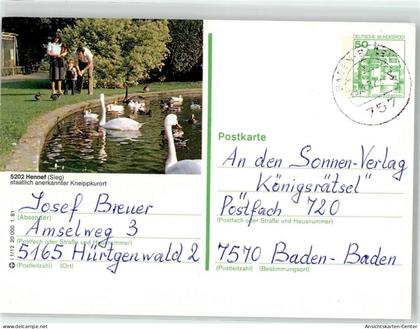 DEUTSCHE BUNDESPOST
50
757
5202 Hennef (Sieg)
staatlich anerkannter Kneippkurort
Postkarte
Josef Breuer
(Absender)
Amselweg 3
(Postfach oder Straße und Hausnummer)
5165 Hürtgenwald 2
(Postleitzahl) (Ort)
An den Sonnen-Verlag
"Königsrätsel"
Postfach 720
(Postfach oder Straße und Hausnummer)
7570 Baden-Baden
(Postleitzahl) (Bestimmungsort)
Ansichtskarten-Center.de